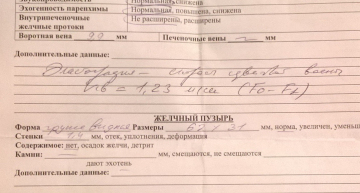 Эхогенность паренхимы Нормальная, повышена, снижена
Внутрипеченочные Не расширены, расширены
желчные протоки
Воротная вена мм Печеночные вены — мм
Дополнительные данные:
Эластография –
1,23 м/сек (F0-F1)
ЖЕЛЧНЫЙ ПУЗЫРЬ
Форма Размеры 62 / 31 мм, норма, увеличен, уменьш
Стенки мм, отек, уплотнения, деформация
Содержимое: нет, осадок желчи, детрит
Камни: — мм, смещаются, не смещаются
дают эхотень
Дополнительные данные: